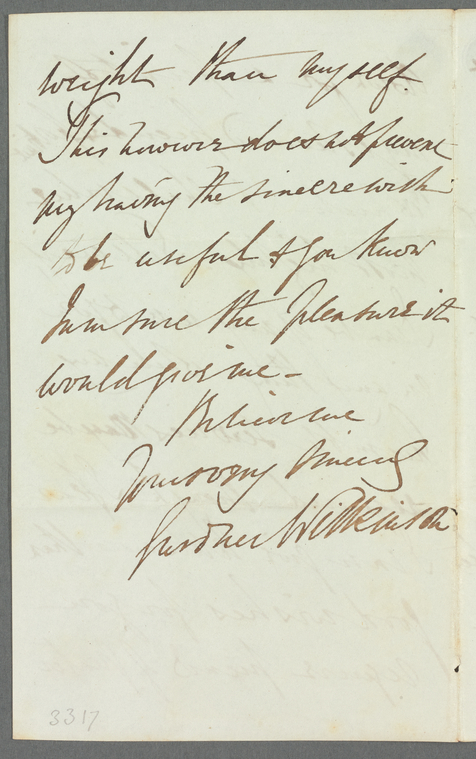 weight than myself.
This however does not prevent
my having the sincere wish
to be useful & you know
I am sure the pleasure it
would give me -
Believe me
Yours very sincerely
Gardner Wilkinson
3317